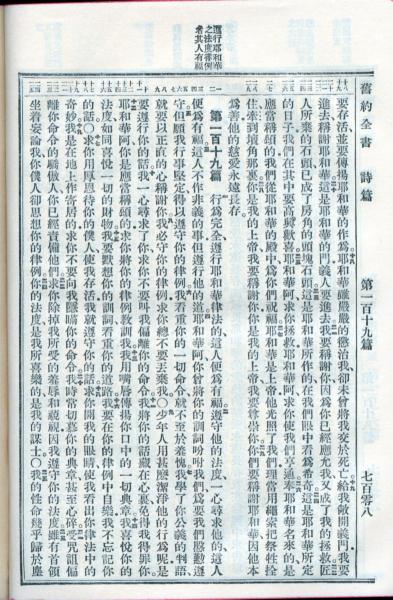 遵行耶和華
之法度律例
者其人有福
舊約全書　詩篇　第一百十九篇　七百零八
要存活並要傳揚耶和華的作爲耶和華雖嚴嚴的懲治我卻未曾將我交於死亡給我敞開義門我要
進去稱謝耶和華這是耶和華的門義人要進去我要稱謝你因爲你已經應允我又成了我的拯救匠
人所棄的石頭已成了房角的頭塊石頭這是耶和華所作的在我們眼中看爲希奇這是耶和華所定
的日子我們在其中要高興歡喜耶和華阿求你拯救耶和華阿求你使我們亨通奉耶和華名來的是
應當稱頌的我們從耶和華的殿中爲你們祝福耶和華是上帝他光照了我們理當用繩索把祭牲拴
住牽到壇角那裏你是我的上帝我要稱謝你你是我的上帝我要尊崇你你們要稱謝耶和華因他本
爲善他的慈愛永遠長存
第一百十九篇　行爲完全遵行耶和華律法的這人便爲有福遵守他的法度一心尋求他的這人
便爲有福這人不作非義的事但遵行他的道耶和華阿你曾將你的訓詞吩咐我們爲要我們慇懃遵
守但願我行事堅定得以遵守你的律例我看重你的一切命令就不至於羞愧我學了你公義的判語
就要以正直的心稱謝你我必守你的律例求你總不要丟棄我〇少年人用甚麼潔淨他的行爲呢是
要遵行你的話我一心尋求了你求你不要叫我偏離你的命令我將你的話藏在心裏免得我得罪你
耶和華阿你是應當稱頌的求你將你的律例教訓我我用嘴唇傳揚你口中的一切典章我喜悅你的
法度如同喜悅一切的財物我要默想你的訓詞看重你的道路我要在你的律例中自樂我不忘記你
的話〇求你用厚恩待你的僕人使我存活我就遵守你的話求你開我的眼睛使我看出你律法中的
奇妙我是在地上作寄居的求你不要向我隱瞞你的命令我時常切慕你的典章甚至心碎受咒詛偏
離你命令的驕傲人你已經責備他們求你除掉我所受的羞辱和藐視因我遵守你的法度雖有首領
坐着妄論我你僕人卻思想你的律例你的法度是我所喜樂的是我的謀士〇我的性命幾乎歸於塵